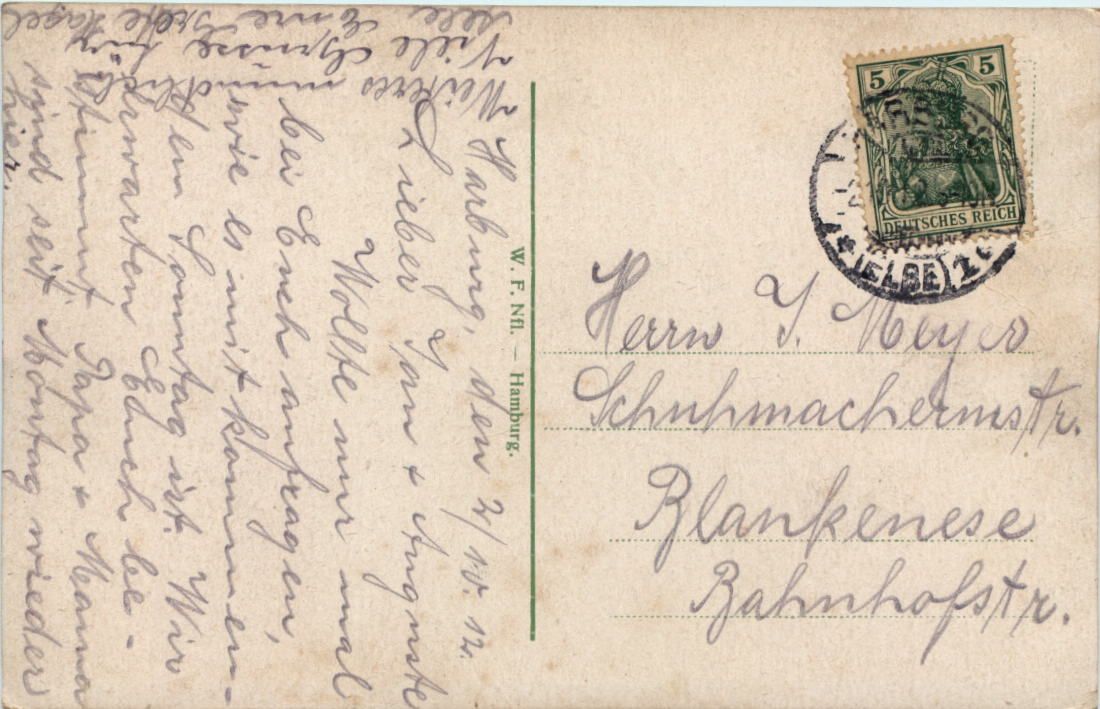 Harburg, den 2/10.12.
Lieber Jan + Auguste
Wollte nur mal
bei Euch anfragen,
wie es mit kommen-
den Sonntag ist. Wir
erwarten Euch be-
stimmt, Papa + Mama
sind seit Montag wieder
hier.
Weiteres mündlich
Viele Grüsse für
W. F. Nfl. — Hamburg.
5 5
DEUTSCHES REICH
(ELBE)
Herrn J. Meyer
Schuhmachermstr.
Blankenese
Bahnhofstr.